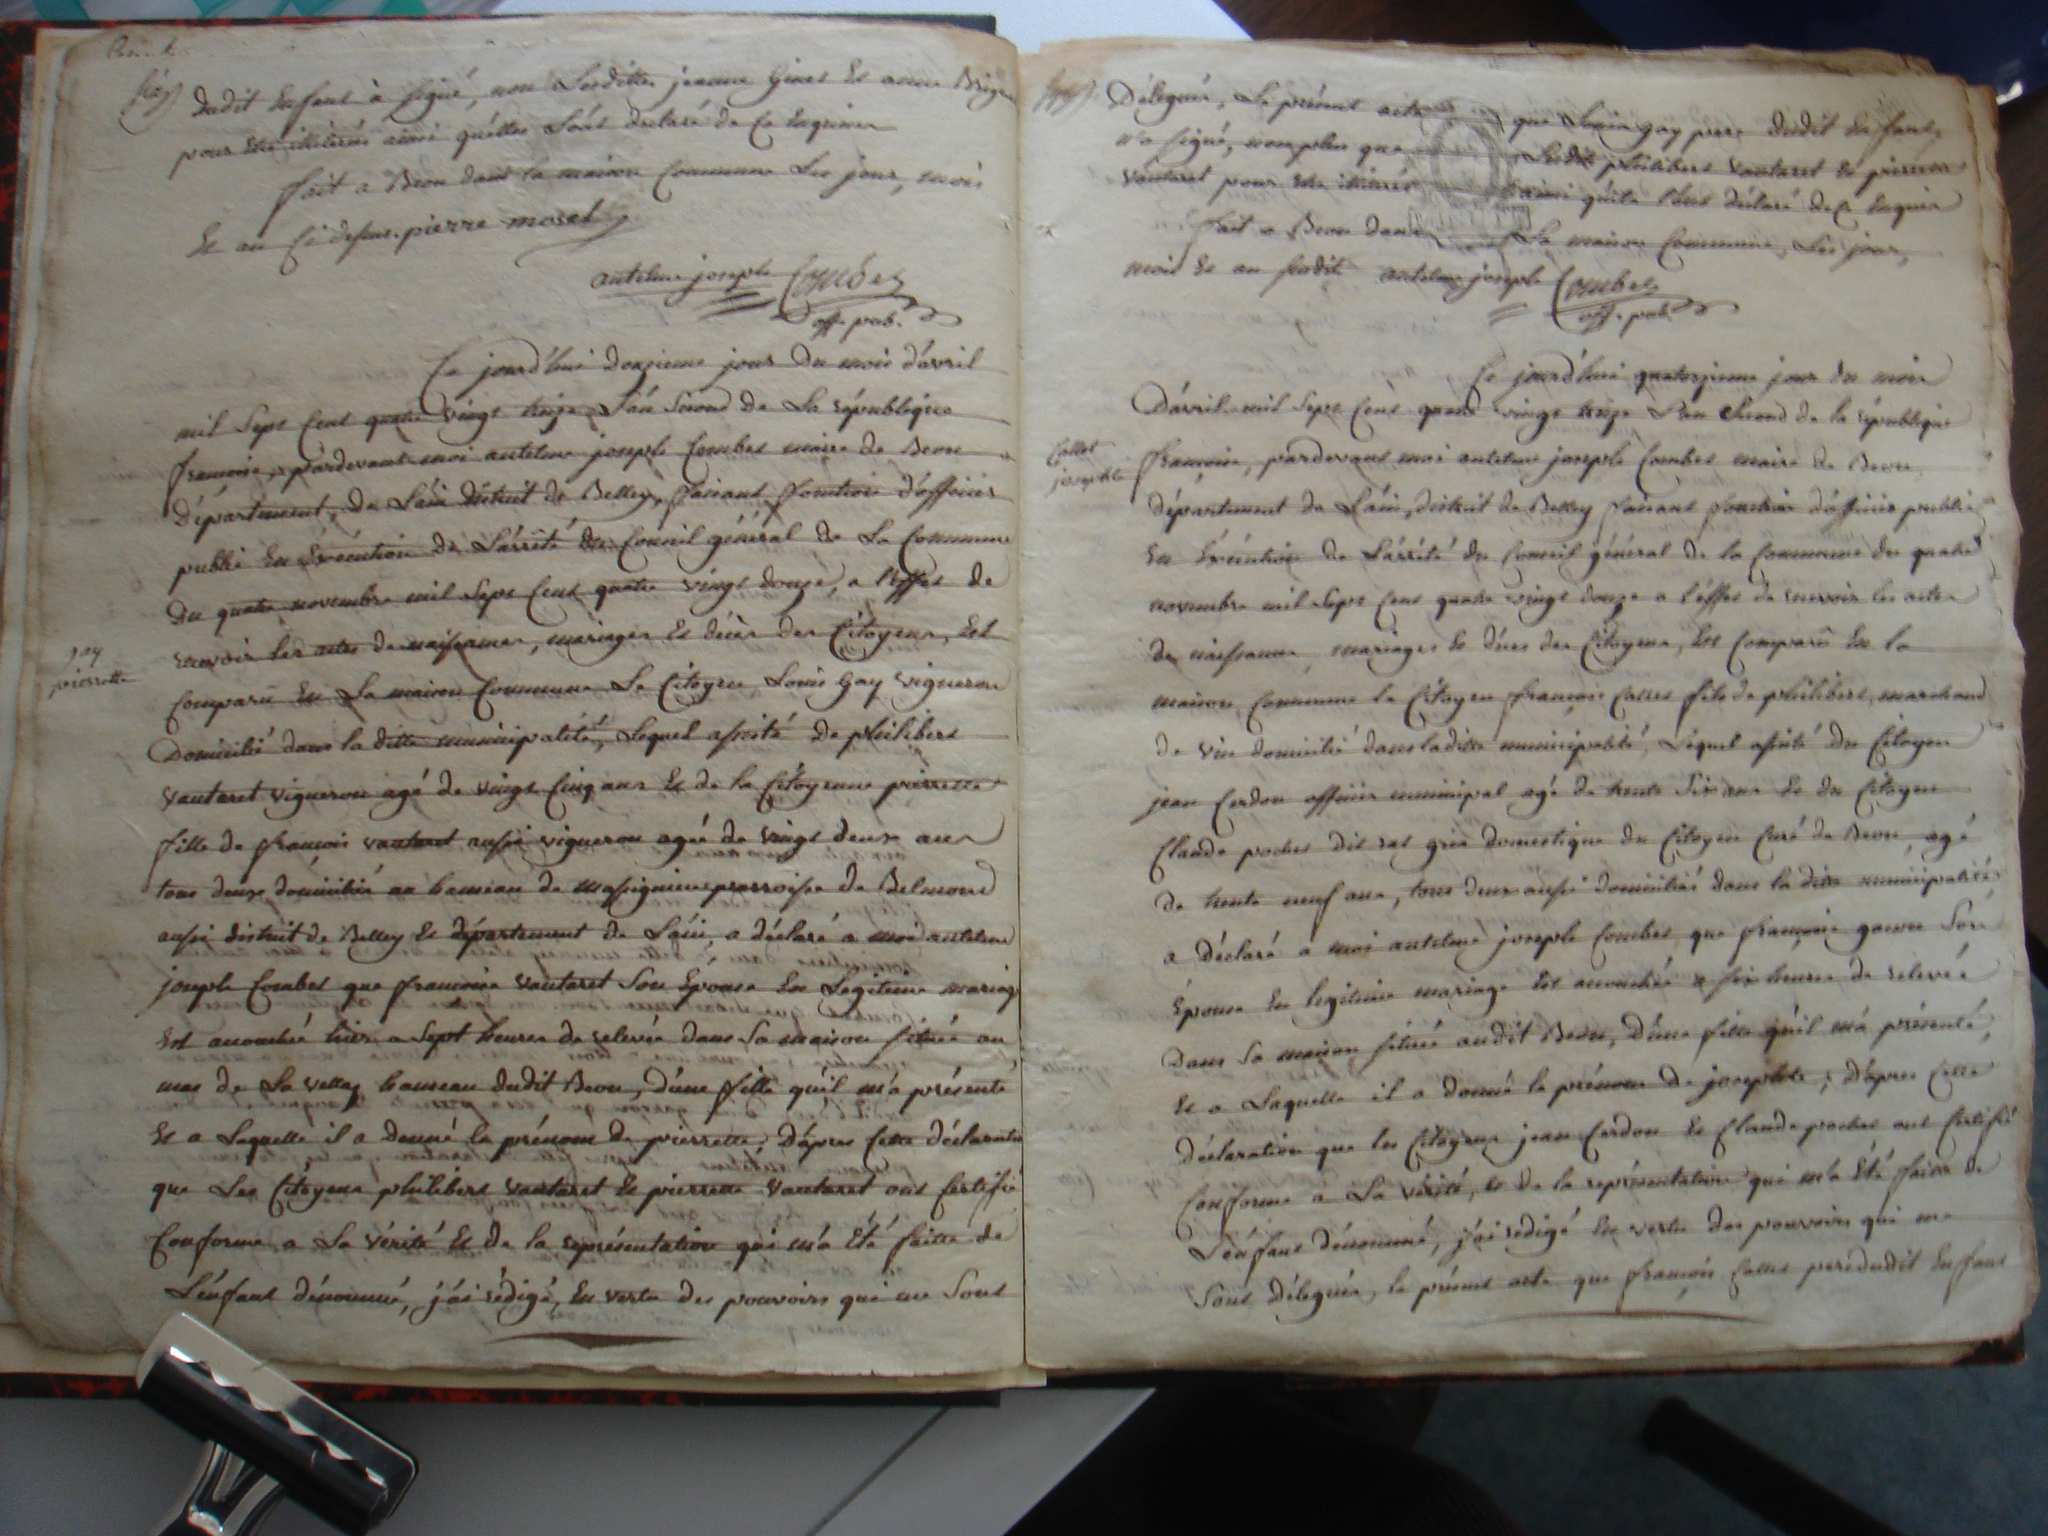 dudit Enfant à signé, non Lesdittes jeanne Ginet Et anne
pour Etre illitérés ainsi quélles L'ont declaré de Ce Enquises
fait a Beon dans la maison Commune Les jour, mois
Et an Ci dessus. pierre moret
antelme joseph Combet
off. pub.
Ce jourd'hui douzieme jour du mois d'avril
mil Sept Cent quatre vingt treize L'an Second de La république
francoise, pardevant moi antelme joseph Combet maire de Beon
Département de L'ain district de Belley, faisant fonction d'officier
public En Exécution de L'arrêté du Conseil général de La Commune
du quatre novembre mil Sept Cent quatre vingt douze, a l'effet de
recevoir les actes de naissances, mariages Et décès des Citoyens, Est
gay
pierrette
Comparu En La maison Commune Le Citoyen Louis Gay vigneron
Domicilié dans la ditte municipalité, Lequel assisté de philibert
vautaret vigneron agé de vingt Cinq ans Et de la Citoyenne pierrette
fille de francois vautaret aussi vigneron agée de vingt deux ans
tous deux domiciliés au hameau de massignieu parroisse de Belmont
aussi district de Belley Et département de L'ain, a déclaré a moi antelme
joseph Combet que francoise vautaret Son Epouse En Legitime mariage
Est accouchée hier a Sept heures de relevée dans Sa maison située au
mas de La hameau dudit Beon, D'une fille qu'il m'a présenté
Et a Laquelle il a donné le prénom de pierrette, D'après Cette déclaration
que Les Citoyens philibert vautaret Et pierrette vautaret ont Certifié
Conforme a La vérité Et de la représentation qui m'a Eté faitte de
L'énfant dénommé, j'ai rédigé, En vertu des pouvoirs qui me Sont
Délégués, Le présent acte que Louis gay pere dudit Enfant
n'a signé, non plus que Lesdits philibert vautaret Et pierrette
vautaret pour Etre illitérés ainsi qu'ils l'ont déclaré de Ce Enquis
fait a Beon dans La maison Commune, Les jour,
mois Et an susdit antelme joseph Combet
off. pub.
Ce jourd'hui quatorzieme jour du mois
D'avril mil Sept Cent quatre vingt treize L'an Second de la république
Callet
josephte
francoise, pardevant moi antelme joseph Combet maire de Beon
département de L'ain, district de Belley faisant fonction d'officier public
En Exécution de L'arrêté du Conseil général de la Commune du quatre
novembre mil Sept Cent quatre vingt douze a l'effet de recevoir les actes
de naissances, mariages Et décès des Citoyens, Est Comparu En la
maison Commune le Citoyen françois Callet fils de philibert, marchand
de vin domicilié dans la ditte municipalité, Lequel assisté du Citoyen
jean Cerdon officier municipal agé de trente Six ans Et du Citoyen
Claude pochet dit domestique du Citoyen Curé de Beon, agé
de trente neuf ans, tous deux aussi domiciliés dans la ditte municipalité
a déclaré a moi antelme joseph Combet que françoise Son
Épouse En legitime mariage Est accouchée a six heures de relevée
dans Sa maison située audit Beon, D'une fille qu'il m'a présenté,
Et a Laquelle il a donné le prénom de josephte ; D'après Cette
déclaration que les Citoyens jean Cerdon Et Claude pochet ont Certifié
Conforme a La vérité, Et de la représentation qui m'a Eté faitte de
L'énfant dénommé, j'ai rédigé En vertu des pouvoirs qui me
Sont Délégués, le présent acte que françois Callet pere dudit Enfant